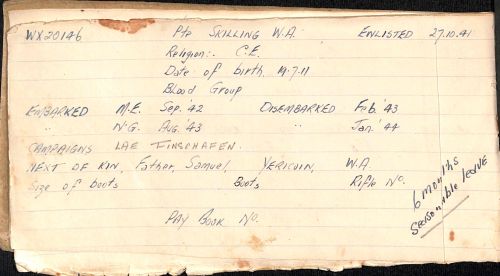 WX20146 Pte SKILLING W.A. ENLISTED 27.10.41
Religion:- C.E.
Date of birth 19.7.11
Blood Group
EMBARKED M.E. Sep. '42 DISEMBARKED Feb. '43
N.G. Aug. '43 " Jan. '44
CAMPAIGNS LAE FINSCHAFEN.
NEXT OF KIN, Father, Samuel, YERICOIN, W.A.
Size of boots Boots Rifle No.
6 months
Seasonable leave
PAY BOOK No.